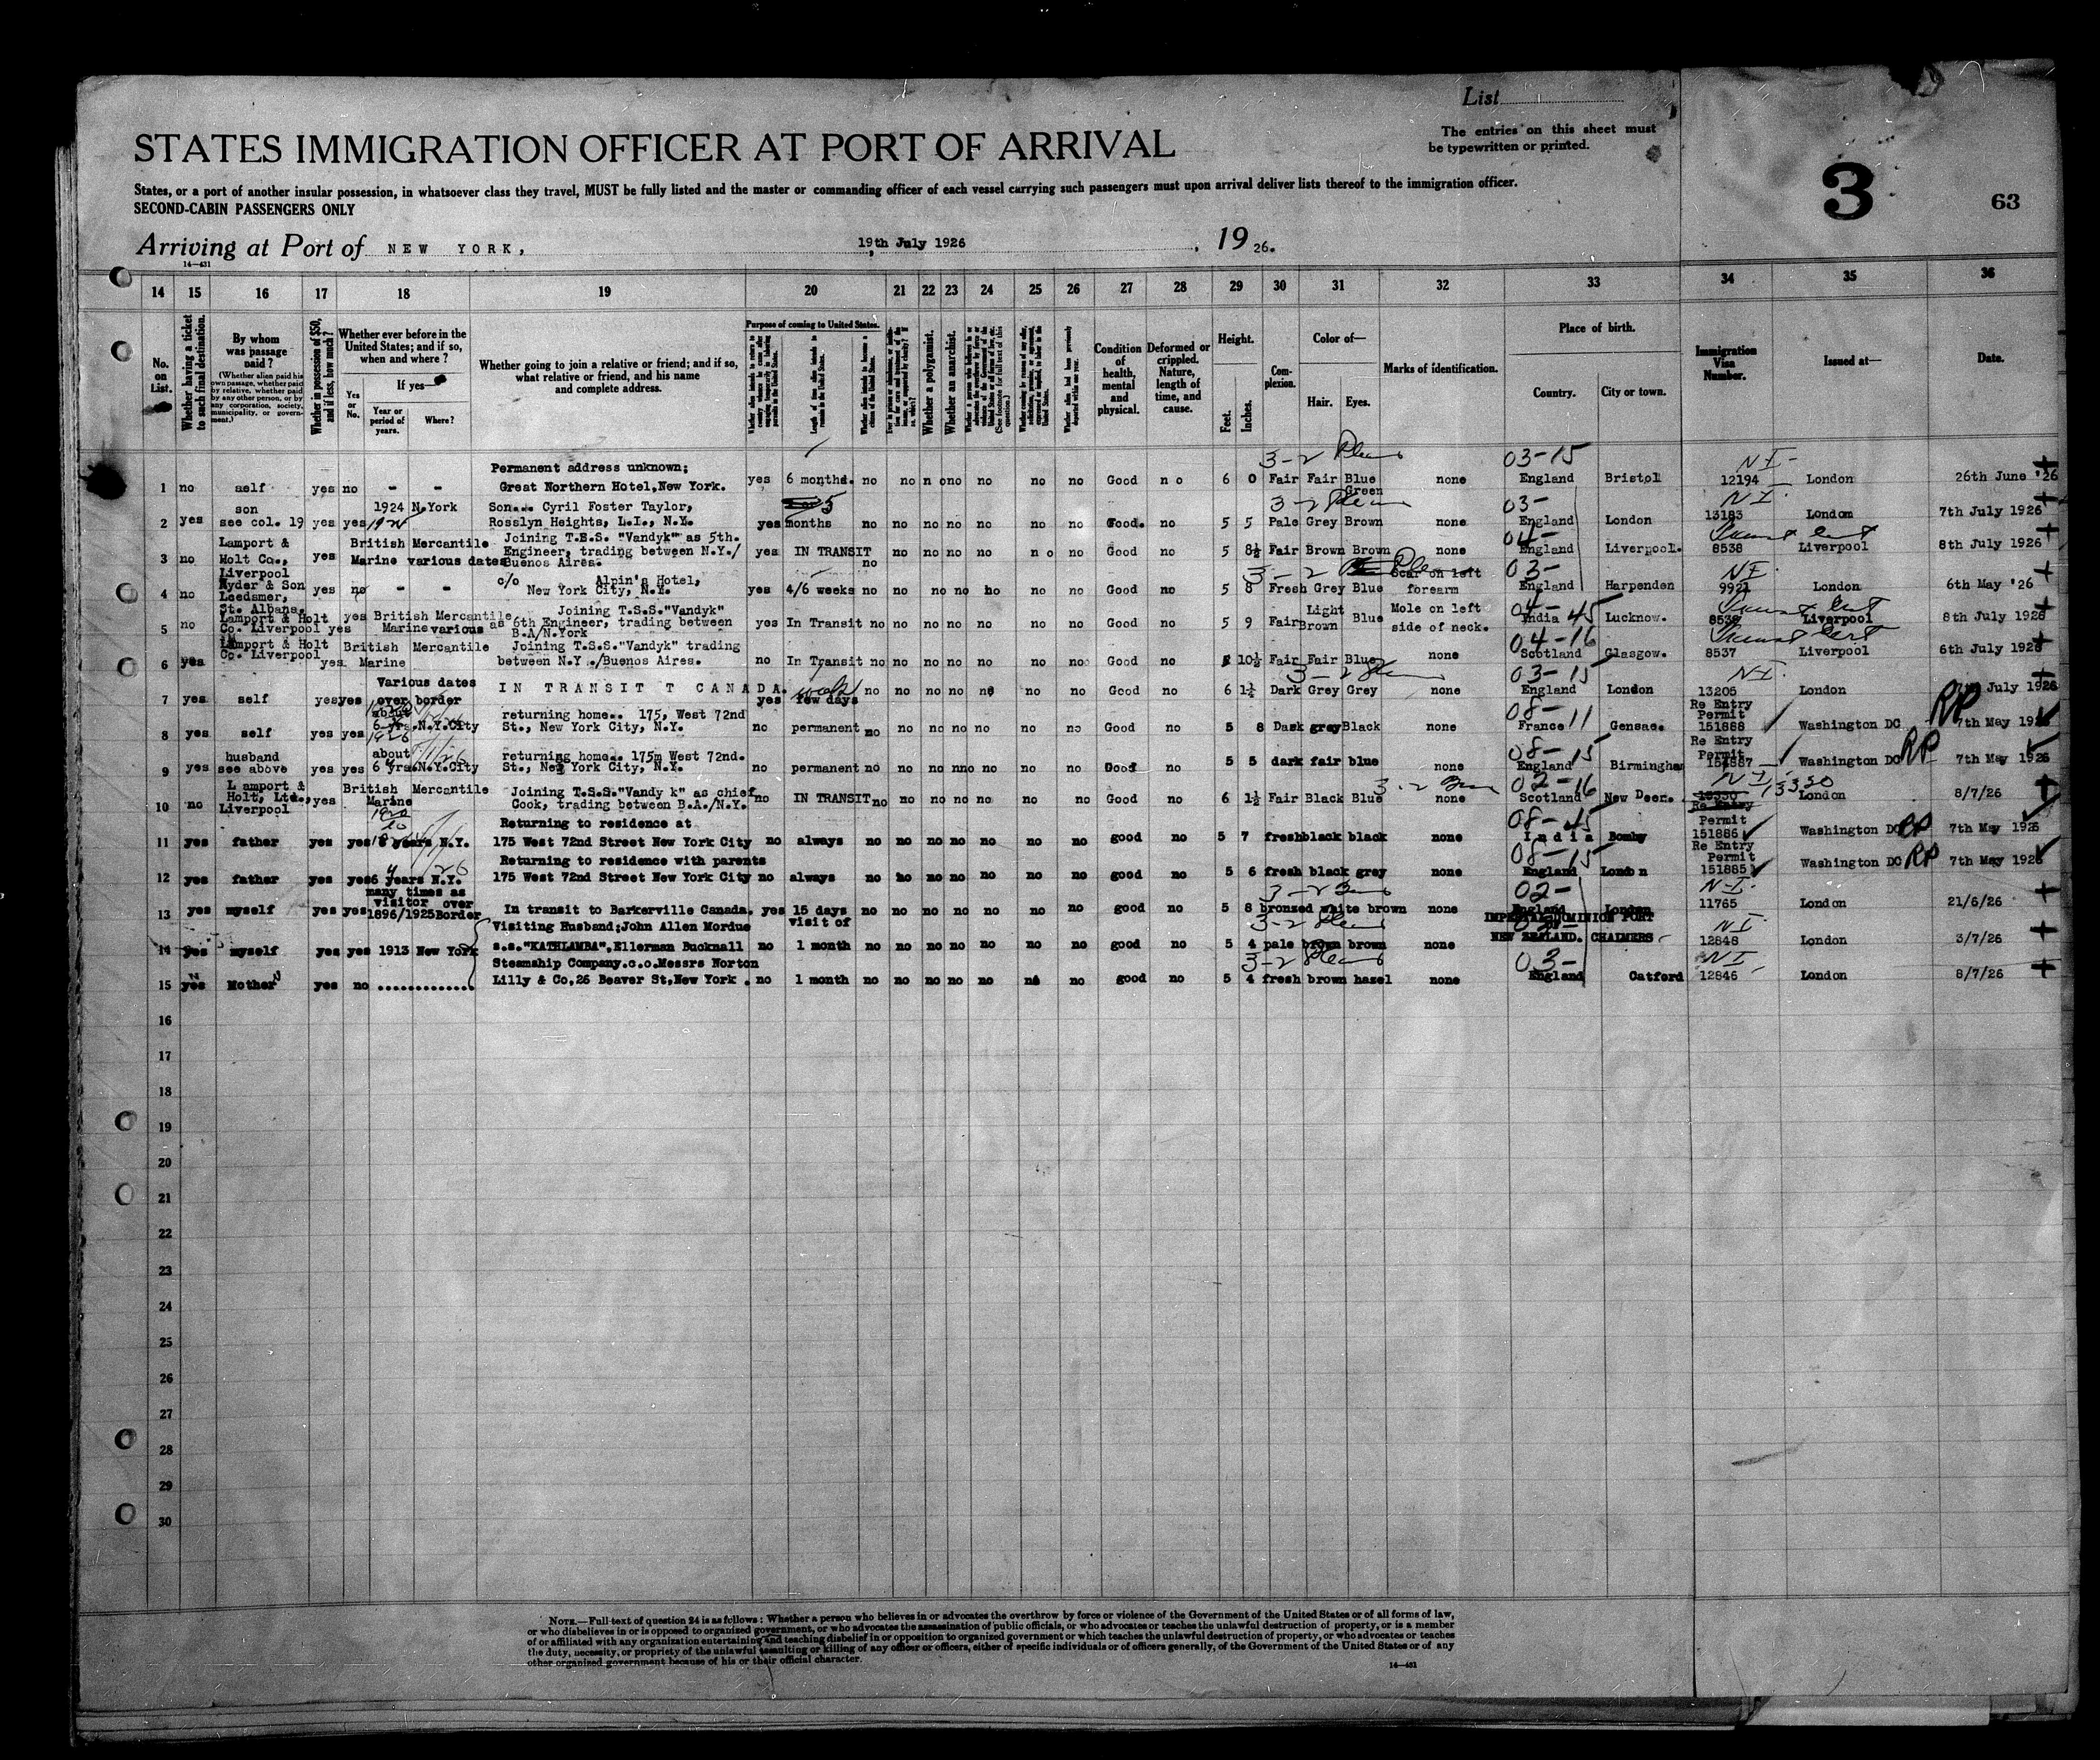 List
The entries on this sheet must
be typewritten or printed.
STATES IMMIGRATION OFFICER AT PORT OF ARRIVAL
3
63
States, or a port of another insular possession, in whatsoever class they travel, MUST be fully listed and the master or commanding officer of each vessel carrying such passengers must upon arrival deliver lists thereof to the immigration officer.
SECOND-CABIN PASSENGERS ONLY
Arriving at Port of NEW YORK, 19th July 1926, 19 26.
14—431
14 15 16 17 18 19 20 21 22 23 24 25 26 27 28 29 30 31 32 33 34 35 36
No. on List.
Whether having a ticket to such final destination.
By whom was passage paid?
(Whether alien paid his own passage, whether paid by relative, whether paid by any other person, or by any corporation, society, municipality, or government.)
Whether in possession of $50, and if less, how much?
Whether ever before in the United States; and if so, when and where?
Yes or No.
If yes—
Year or period of years.
Where?
Whether going to join a relative or friend; and if so, what relative or friend, and his name and complete address.
Purpose of coming to United States.
Whether a polygamist.
Whether an anarchist.
Condition of health, mental and physical.
Deformed or crippled. Nature, length of time, and cause.
Height.
Feet.
Inches.
Complexion.
Color of—
Hair.
Eyes.
Marks of identification.
Place of birth.
Country.
City or town.
Immigration Visa Number.
Issued at—
Date.
3-2 03-15 NI
Permanent address unknown;
1 no self yes no - - Great Northern Hotel, New York. yes 6 months. no no no no no no no Good no 6 0 Fair Fair Blue none England Bristol 12194 London 26th June '26
Green
3-2 03- NI
son 1924 N.York Son... Cyril Foster Taylor, 5
2 yes see col. 19 yes yes Rosslyn Heights, L.I., N.Y. yes months no no no no no no no Good. no 5 5 Pale Grey Brown none England London 13183 London 7th July 1926
04-
Lamport & British Mercantile Joining T.S.S. "Vandyk" as 5th.
3 no Holt Co., yes Marine various dates Engineer, trading between N.Y./ yes IN TRANSIT no no no no no no no Good no 5 8½ Fair Brown Brown none England Liverpool. 8538 Liverpool 8th July 1926
Liverpool Buenos Aires.
3-2 03- NI
Ryder & Son c/o Alpin's Hotel, Scar on left
4 no Leedsmer, yes no - - New York City, N.Y. yes 4/6 weeks no no no no no no no Good no 5 8 Fresh Grey Blue forearm England Harpenden 9921 London 6th May '26
St. Albans.
04-45
Lamport & Holt yes British Mercantile Joining T.S.S."Vandyk" Light Mole on left
5 no Co. Liverpool yes Marine various as 6th Engineer, trading between yes In Transit no no no no no no no Good no 5 9 Fair Brown Blue side of neck. India Lucknow. Liverpool 8th July 1926
B.A/N.York
04-16
Lamport & Holt British Mercantile Joining T.S.S."Vandyk" trading
6 yes Co. Liverpool yes Marine between N.Y./Buenos Aires. no In Transit no no no no no no no Good no 10½ Fair Fair Blue none Scotland Glasgow. 8537 Liverpool 6th July 1926
3-2 03-15 NI
Various dates IN TRANSIT T CANADA.
7 yes self yes yes over border yes few days no no no no no no no Good no 6 1½ Dark Grey Grey none England London 13205 London July 1926
08-11 Re Entry RP
about returning home.. 175, West 72nd Permit
8 yes self yes yes N.Y.City St., New York City, N.Y. no permanent no no no no no no no Good no 5 8 Dark grey Black none France Gensac. 151888 Washington DC 7th May 1926
08-15 Re Entry RP
husband about returning home.. 175m West 72nd. Permit
9 yes see above yes yes 6 yrs. N.Y.City St., New York City, N.Y. no permanent no no no no no no no Good no 5 5 dark fair blue none England Birmingham 151887 Washington DC 7th May 1926
3-2 02-16 NI 13330
Lamport & British Mercantile Joining T.S.S."Vandyk" as chief
10 no Holt, Ltd., yes Marine Cook, trading between B.A./N.Y. no IN TRANSIT no no no no no no no Good no 6 1½ Fair Black Blue none Scotland New Deer. London 8/7/26
Liverpool
08-45 Re Entry RP
Returning to residence at Permit
11 yes father yes yes years N.Y. 175 West 72nd Street New York City no always no no no no no no no good no 5 7 fresh black black none India Bomby 151886 Washington DC 7th May 1926
08-15 Re Entry RP
Returning to residence with parents Permit
12 yes father yes yes 6 years N.Y. 175 West 72nd Street New York City no always no no no no no no no good no 5 6 fresh black grey none England London 151885 Washington DC 7th May 1926
3-2 02- N-I
many times as
visitor over
13 yes myself yes yes 1896/1925 Border In transit to Barkerville Canada. yes 15 days no no no no no no no good no 5 8 bronzed white brown none England London 11765 London 21/6/26
3-2 NI
Visiting Husband; John Allen Mordue visit of IMPERIAL DOMINION PORT
14 yes myself yes yes 1913 New York s.s."KATHLAMBA", Ellerman Bucknall no 1 month no no no no no no no good no 5 4 pale brown brown none NEW ZEALAND. CHALMERS 12848 London 3/7/26
3-2 03- NI
Steamship Company.c.o.Messrs Norton
15 yes Mother yes no ............. Lilly & Co,26 Beaver St,New York . no 1 month no no no no no no no good no 5 4 fresh brown hazel none England Catford 12846 London 8/7/26
16
17
18
19
20
21
22
23
24
25
26
27
28
29
30
NOTE.—Full text of question 24 is as follows: Whether a person who believes in or advocates the overthrow by force or violence of the Government of the United States or of all forms of law,
or who disbelieves in or is opposed to organized government, or who advocates the assassination of public officials, or who advocates or teaches the unlawful destruction of property, or is a member
of or affiliated with any organization entertaining and teaching disbelief in or opposition to organized government or which teaches the unlawful destruction of property, or who advocates or teaches
the duty, necessity, or propriety of the unlawful assaulting or killing of any officer or officers, either of specific individuals or of officers generally, of the Government of the United States or of any
other organized government because of his or their official character.
14—431